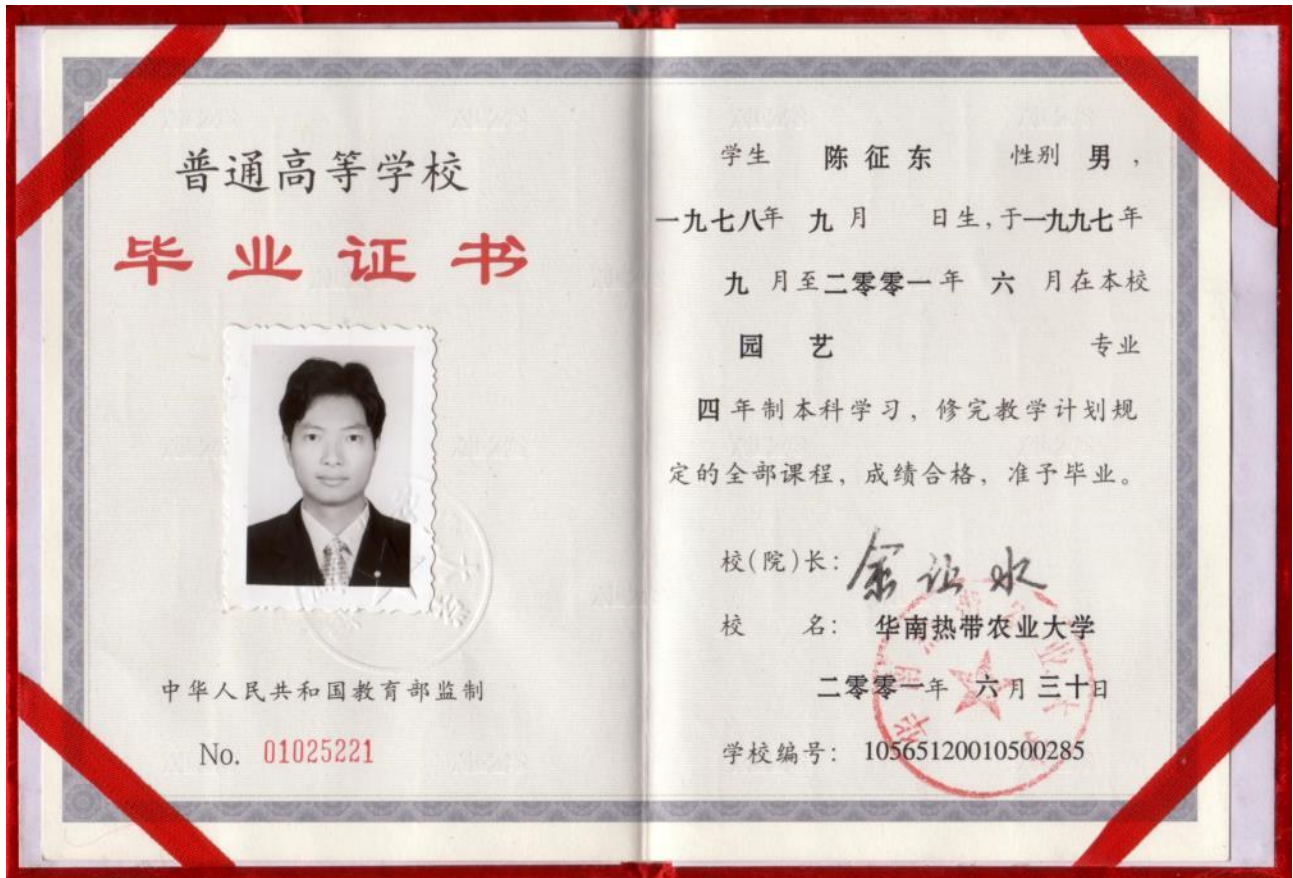 普通高等学校
毕业证书
中华人民共和国教育部监制
No. 01025221
学生 陈征东 性别 男，
一九七八年 九月 日生，于一九九七年
九 月至二零零一年 六 月在本校
园 艺 专业
四年制本科学习，修完教学计划规
定的全部课程，成绩合格，准予毕业。
校(院)长：
校 名： 华南热带农业大学
二零零一年 六月三十日
学校编号： 10565120010500285